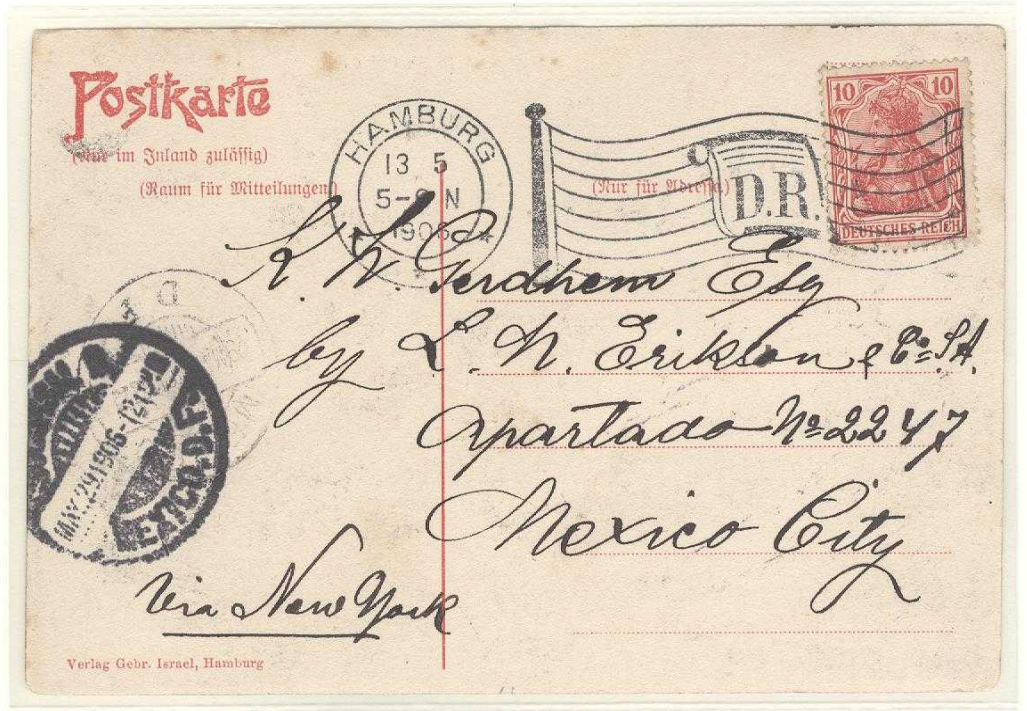 Postkarte
(Nur im Inland zulässig)
(Raum für Mitteilungen)
(Nur für Adresse)
HAMBURG
13 5
5-6 N
1906
D.R.
10 10
DEUTSCHES REICH
K. W. Gerdhem Esq
by L. N. Erikson & Co. S.A.
Apartado No 2247
Mexico City
MAY.29.1906-12
MEXICO.D.F.
via New York
Verlag Gebr. Israel, Hamburg